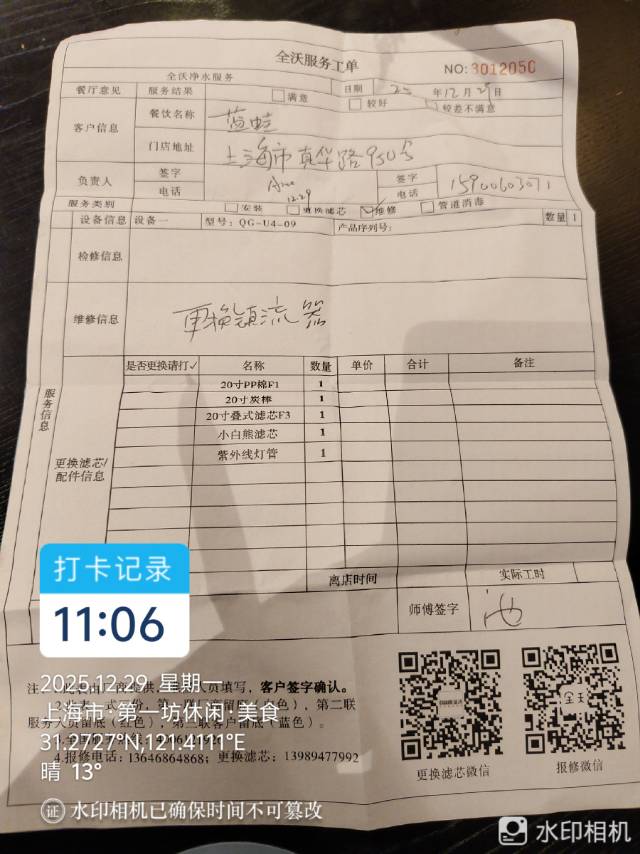 全沃服务工单
全沃净水服务
NO:3012050
餐厅意见 服务结果 满意 较好 较差不满意
日期 25年12月29日
客户信息 餐饮名称 蓝蛙
门店地址 上海市真华路950号
负责人 签字 12.29 签字
电话 电话 15900603071
服务类别 安装 更换滤芯 维修 管道消毒
设备信息 设备一 型号:QG-U4-09 产品序列号: 数量 1
检修信息
维修信息 更换镇流器
服务信息
是否更换请打✓ 名称 数量 单价 合计 备注
20寸PP棉F1 1
20寸炭棒 1
20寸叠式滤芯F3 1
小白熊滤芯 1
紫外线灯管 1
更换滤芯/
配件信息
离店时间 实际工时
师傅签字
打卡记录
11:06
2025.12.29 星期一
上海市·第一坊休闲·美食
31.2727°N,121.4191°E
晴 13°
人员填写,客户签字确认。
色),第二联
服务人员留底(红色),第三联客户留底(蓝色)。
4.报修电话:13646864868;更换滤芯:13989477992
更换滤芯微信 报修微信
证 水印相机已确保时间不可篡改
水印相机